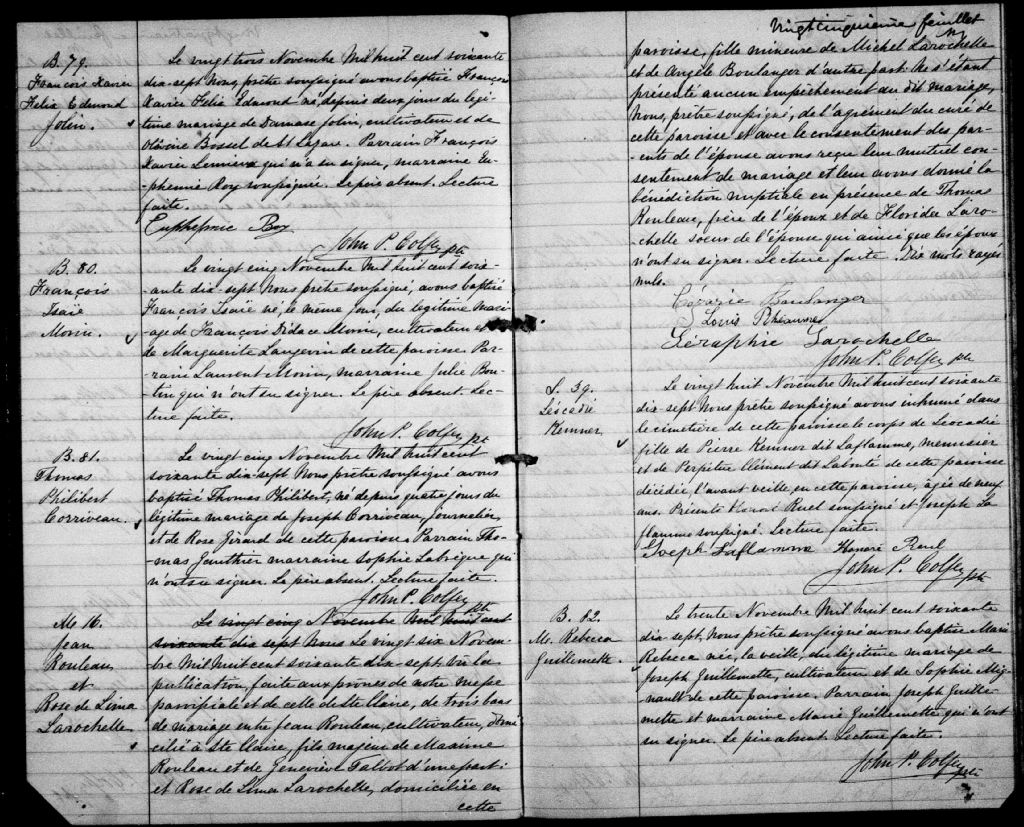 B. 79.
François Xavier
Felix Edmond
Jolin.
Le vingt trois Novembre Mil huit cent soixante
dix-sept Nous, prêtre soussigné avons baptisé François
Xavier Felix Edmond né, depuis deux jours du légi-
time mariage de Damase Jolin, cultivateur et de
Olivine Bossel de St Lazare. Parrain François
Xavier Lemieux qui n'a su signer, marraine Eu-
phemie Roy soussignée. Le père absent. Lecture
faite.
Euphémie Roy
John P. Colfer ptr
B. 80.
François
Isaïe
Morin.
Le vingt cinq Novembre Mil huit cent soix-
ante dix-sept Nous prêtre soussigné, avons baptisé
François Isaïe né, le même jour, du légitime mari-
age de François Didace Morin, cultivateur et
de Marguerite Langevin de cette paroisse. Par-
rain Laurent Morin, marraine Julie Bou-
tin qui n'ont su signer. Le père absent. Lec-
ture faite.
John P. Colfer pt
B. 81.
Thomas
Philibert
Corriveau.
Le vingt cinq Novembre Mil huit cent
soixante dix-sept Nous prêtre soussigné avons
baptisé Thomas Philibert, né depuis quatre jours du
légitime mariage de Joseph Corriveau, journalier
et de Rose Girard de cette paroisse Parrain Tho-
mas Gauthier marraine Sophie Labrique qui
n'ont su signer. Le père absent. Lecture faite.
John P. Colfer ptr
M 16.
Jean
Rouleau
et
Rose de Lima
Larochelle
Le vingt cinq Novembre Mil huit cent
soixante dix sept Nous Le vingt six Novem-
bre Mil huit cent soixante dix-sept, vu la
publication, faite aux prônes de notre messe
paroissiale et de celle de Ste Claire, de trois bans
de mariage entre Jean Rouleau, cultivateur, domi-
cilié à Ste Claire, fils majeur de Maxime
Rouleau et de Geneviève Talbot d'une part;
et Rose de Lima Larochelle, domiciliée en
cette
Vingtcinquième feuillet
paroisse, fille mineure de Michel Larochelle
et de Angèle Boulanger d'autre part. Ne s'étant
présenté aucun empêchement au dit mariage,
Nous, prêtre soussigné, de l'agrément du curé de
cette paroisse et avec le consentement des par-
ents de l'épouse avons reçu leur mutuel con-
sentement de mariage et leur avons donné la
bénédiction nuptiale en présence de Thomas
Rouleau, frère de l'époux et de Floridée Laro-
chelle soeur de l'épouse qui ainsi que les époux
n'ont su signer. Lecture faite. Dix mots rayés
nuls.
Cézarie Boulanger
Louis Rhéaume
Séraphie Larochelle
John P. Colfer ptr
S. 39.
Léocadie
Kemner
Le vingt huit Novembre Mil huit cent soixante
dix-sept Nous prêtre soussigné avons inhumé dans
le cimetière de cette paroisse le corps de Léocadie
fille de Pierre Kemner dit Laflamme, menuisier
et de Perpétue Clément dit Labonté de cette paroisse
décédée, l'avant veille, en cette paroisse, agée de neuf
ans. Présents Honoré Ruel soussigné et Joseph La
flamme soussigné. Lecture faite.
Joseph Laflamme Honoré Ruel
John P. Colfer ptr
B. 82.
M. Rebecca
Guillemette.
Le trente Novembre Mil huit cent soixante
dix-sept, Nous prêtre soussigné avons baptisé Marie
Rebecca née, la veille, du légitime mariage de
Joseph Guillemette, cultivateur et de Sophie Mig-
nault de cette paroisse. Parrain Joseph Guille-
mette et marraine Marie Guillemette qui n'ont
su signer. Le père absent. Lecture faite.
John P. Colfer ptr